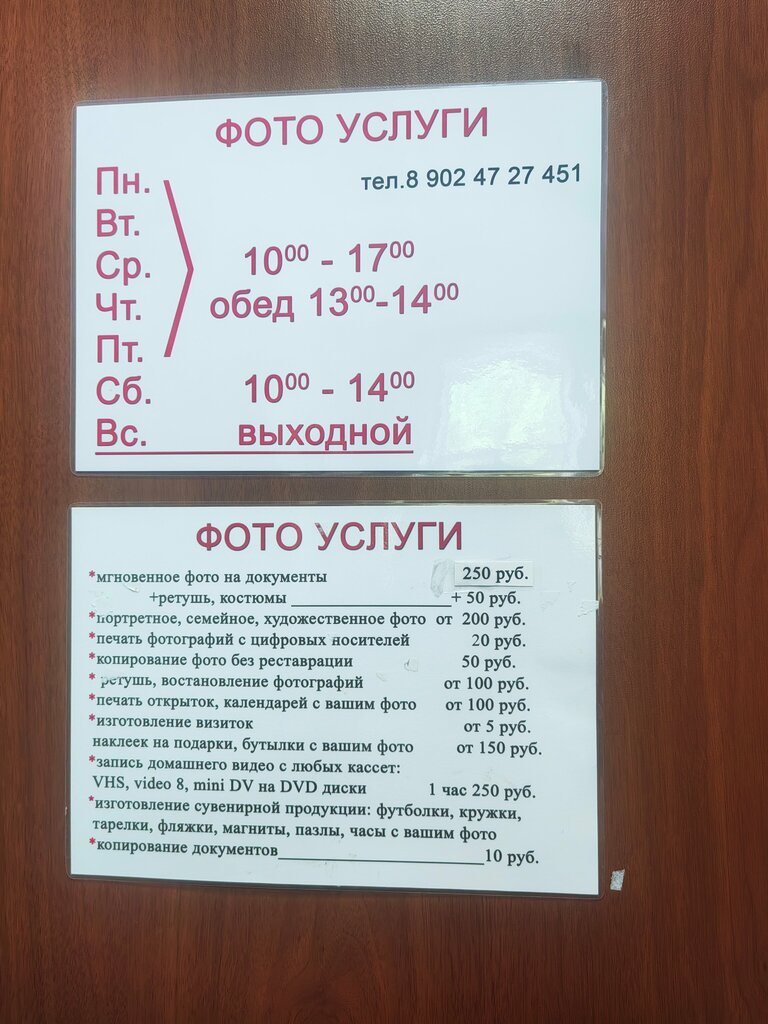 ФОТО УСЛУГИ
тел.8 902 47 27 451
Пн.
Вт.
Ср. 10⁰⁰ - 17⁰⁰
Чт. обед 13⁰⁰-14⁰⁰
Пт.
Сб. 10⁰⁰ - 14⁰⁰
Вс. выходной
ФОТО УСЛУГИ
*мгновенное фото на документы 250 руб.
+ретушь, костюмы ____________________+ 50 руб.
*портретное, семейное, художественное фото от 200 руб.
*печать фотографий с цифровых носителей 20 руб.
*копирование фото без реставрации 50 руб.
* ретушь, востановление фотографий от 100 руб.
*печать открыток, календарей с вашим фото от 100 руб.
*изготовление визиток от 5 руб.
наклеек на подарки, бутылки с вашим фото от 150 руб.
*запись домашнего видео с любых кассет:
VHS, video 8, mini DV на DVD диски 1 час 250 руб.
*изготовление сувенирной продукции: футболки, кружки,
тарелки, фляжки, магниты, пазлы, часы с вашим фото
*копирование документов__________________________10 руб.